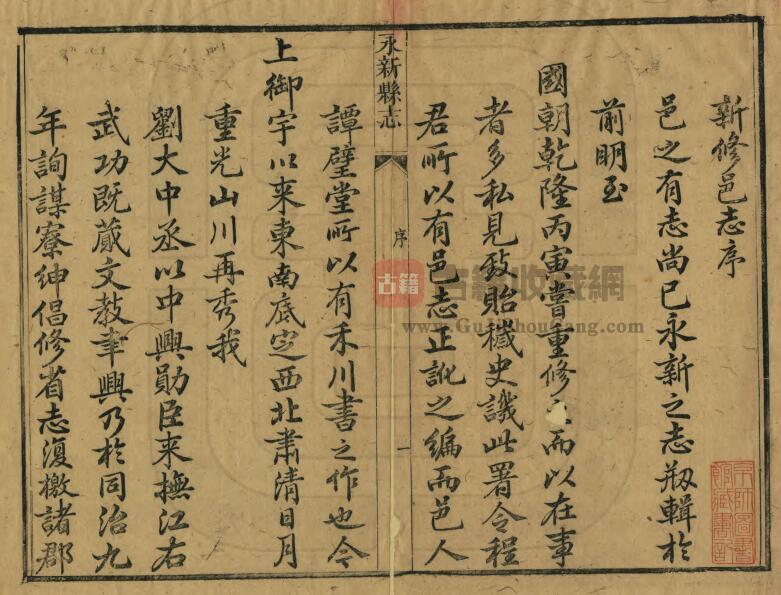 新修邑志序
邑之有志尚已永新之志剏輯於
前明至
國朝乾隆丙寅嘗重修之而以在事
者多私見致貽穢史譏此署令程
君所以有邑志正訛之編而邑人
永新縣志
序
一
譚璧堂所以有禾川書之作也今
上御宇以来東南底定西北肅清日月
重光山川再秀我
劉大中丞以中興勛臣来撫江右
武功既蕆文教聿興乃於同治九
年詢謀寮紳倡修省志復檄諸郡
京師圖書
館藏書記
古籍
古籍收藏網